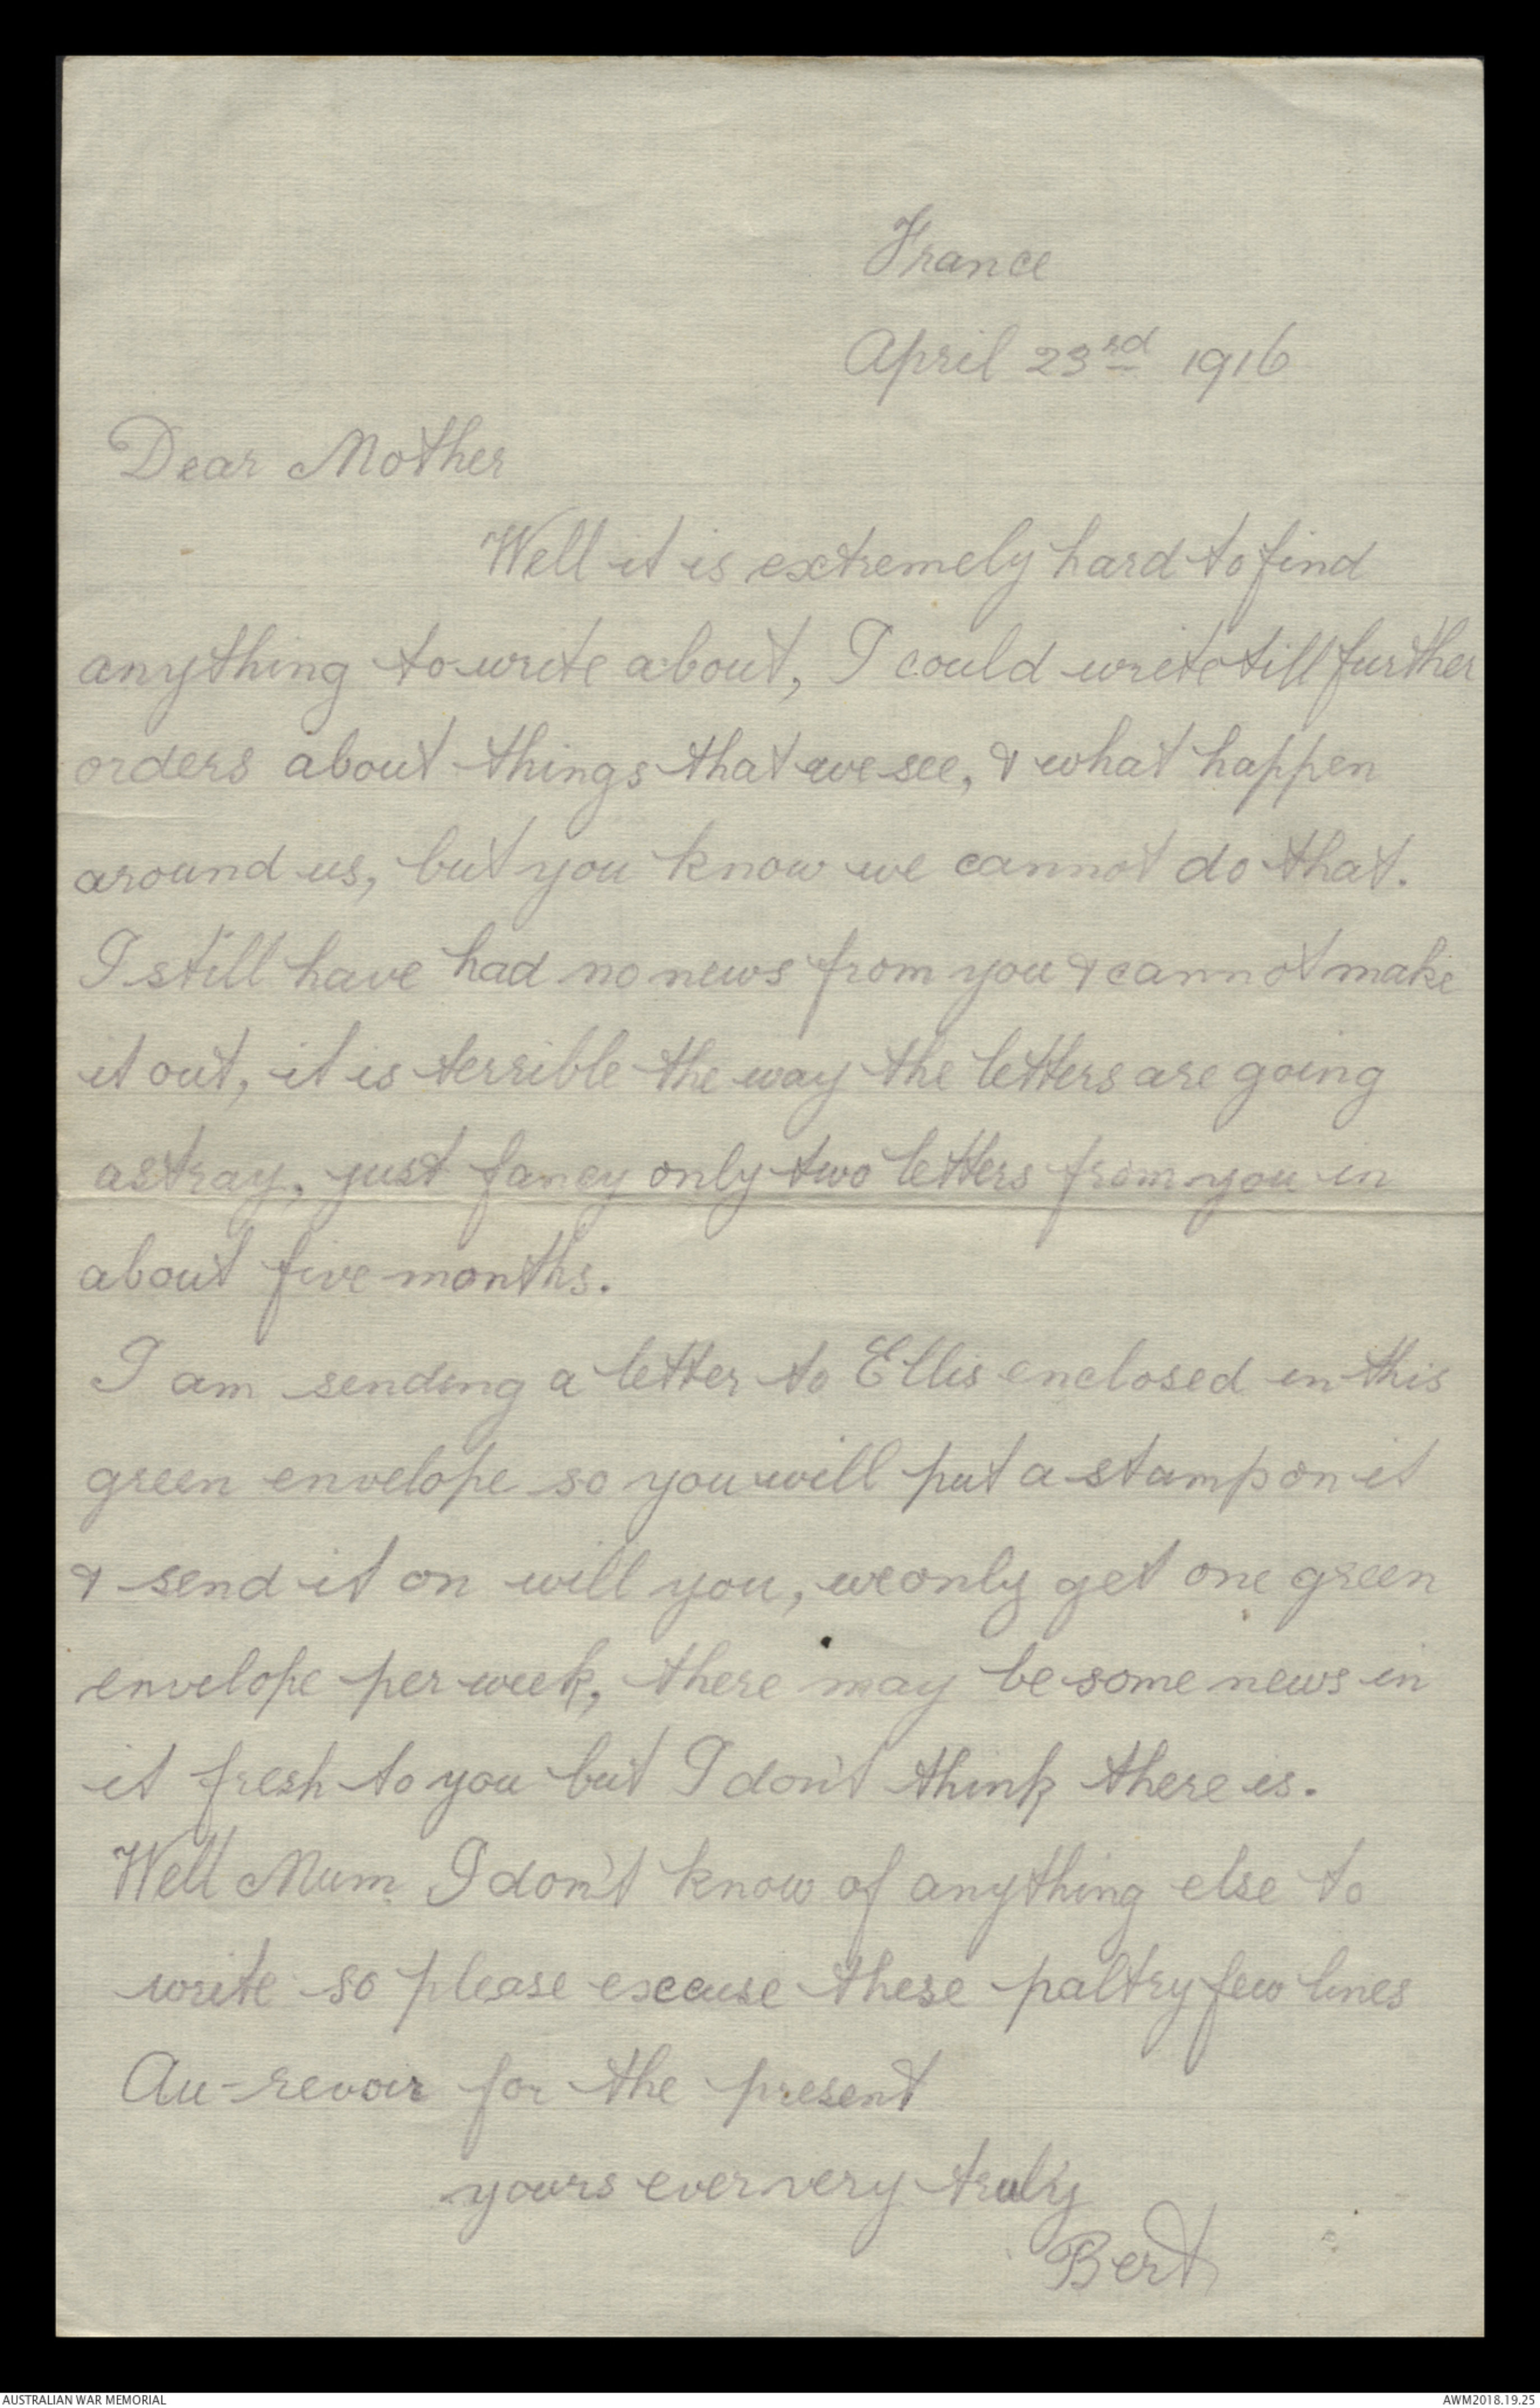 France
April 23rd 1916
Dear Mother
Well it is extremely hard to find
anything to write about, I could write till further
orders about things that we see, & what happen
around us, but you know we cannot do that.
I still have had no news from you & cannot make
it out, it is terrible the way the letters are going
astray, just fancy only two letters from you in
about five months.
I am sending a letter to Ellis enclosed in this
green envelope so you will put a stamp on it
& send it on will you, we only get one green
envelope per week, there may be some news in
it fresh to you but I don't think there is.
Well Mum I don't know of anything else to
write so please excuse these paltry few lines
Au-revoir for the present
yours ever very truly
Bert
AUSTRALIAN WAR MEMORIAL
AWM2018.19.25